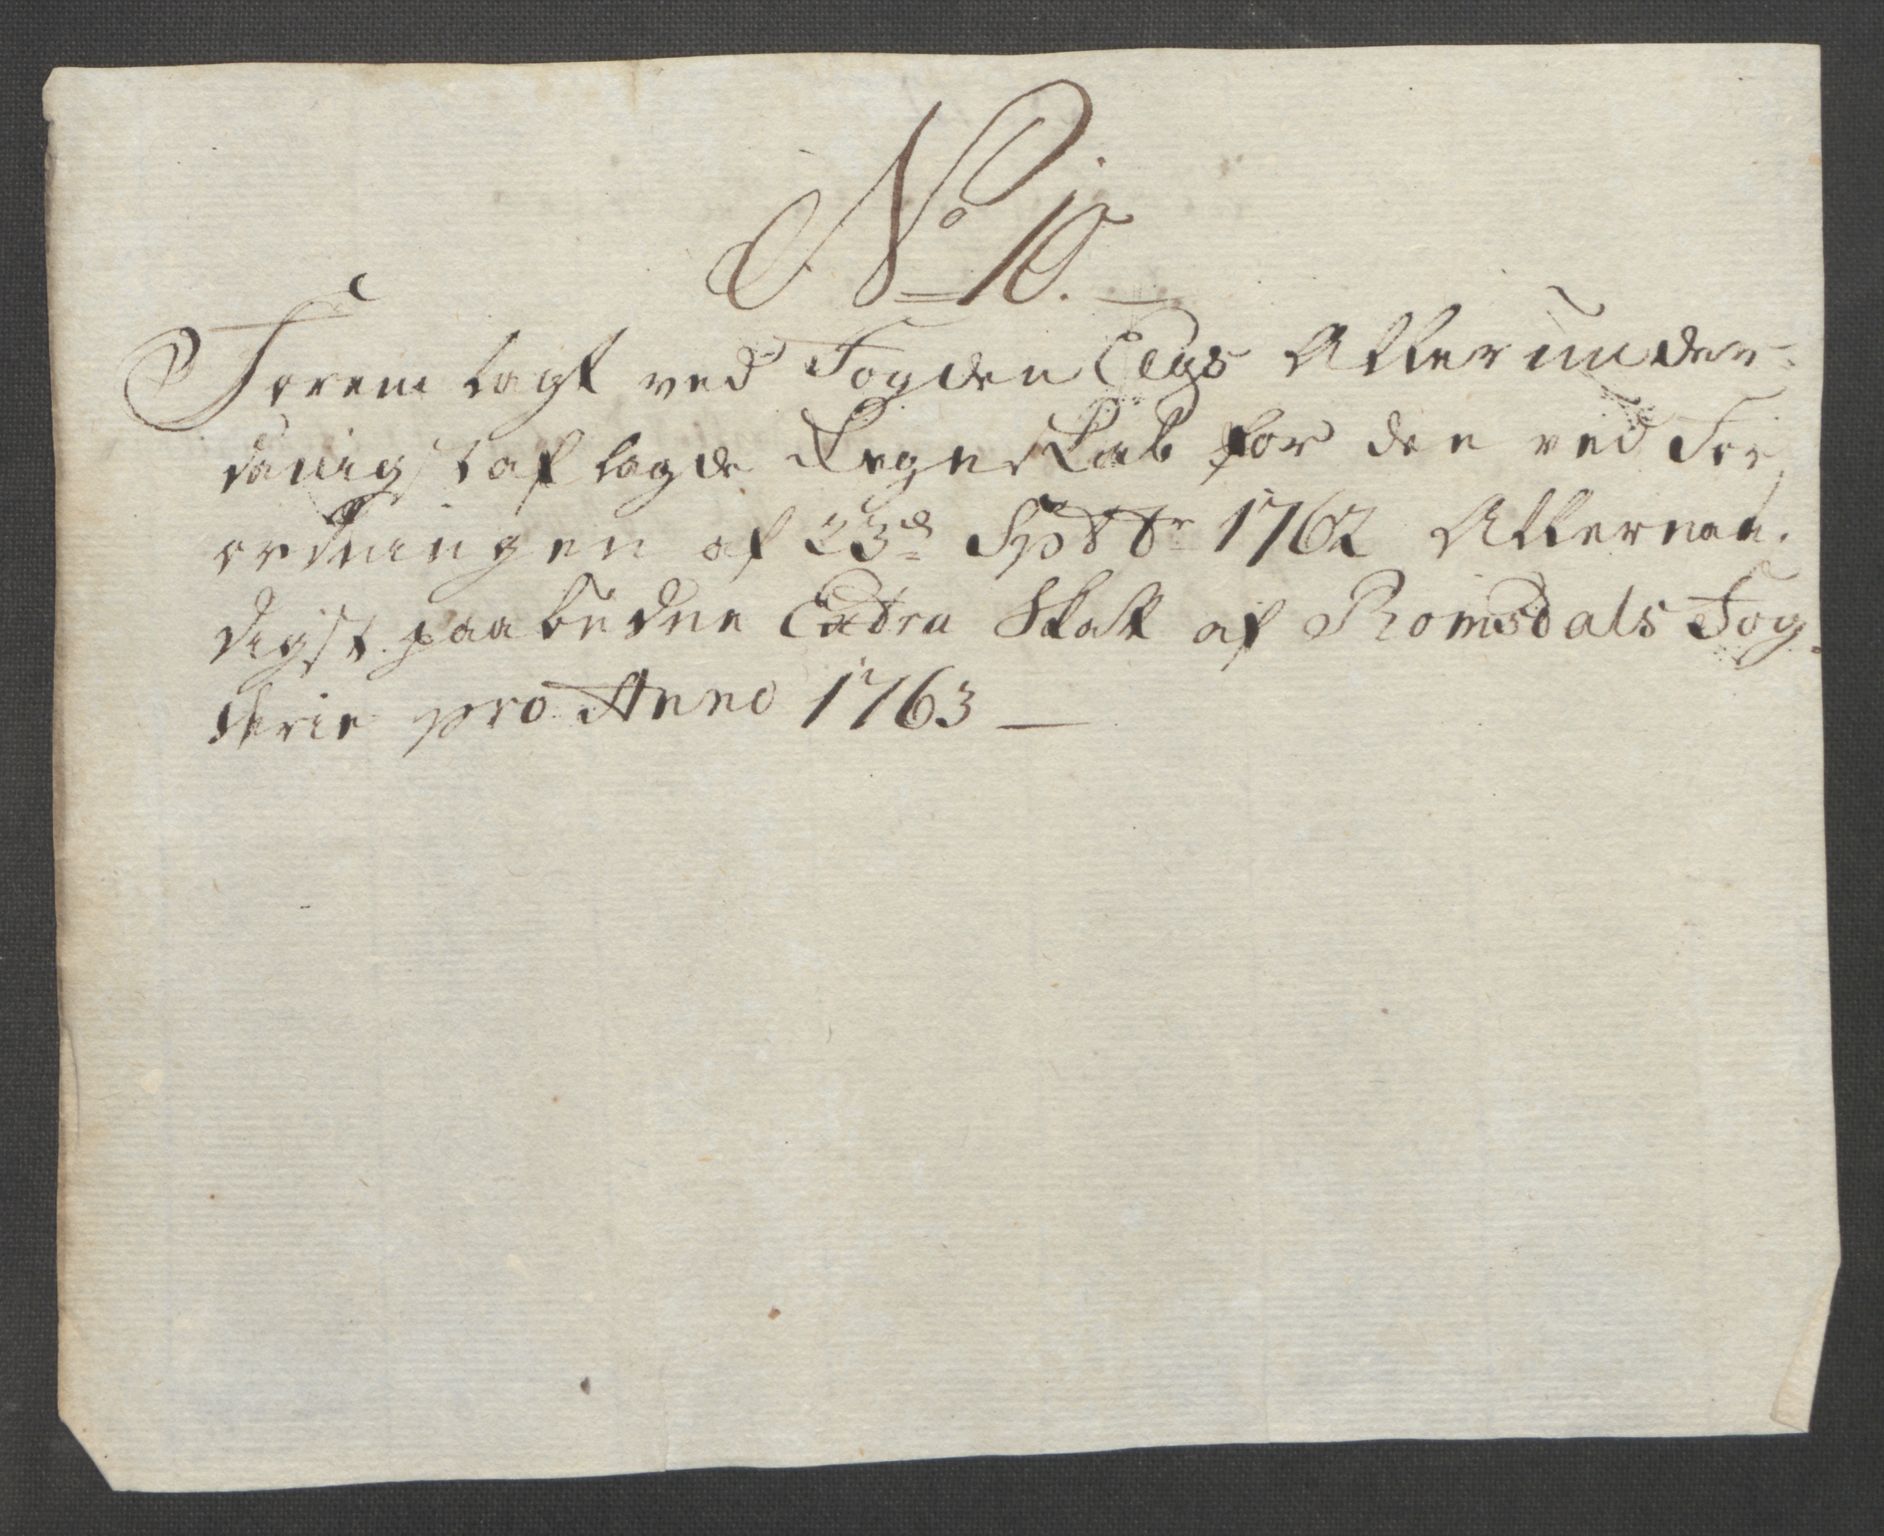 No 10.
Forem lagt ved Fogden Eegs Allerunder-
danigst aflagde Regenskab for den ved For
ordningen af 23d Sptbr 1762 Allernaa-
digst paabudne Extra Skatt af Romsdals Fog-
derie pro Anno 1763 —